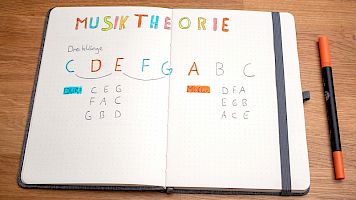 MUSIKTHEORIE
Dreiklänge
C D E F G A B C
DUR: C E G
F A C
G B D
MOLL: D F A
E G B
A C E